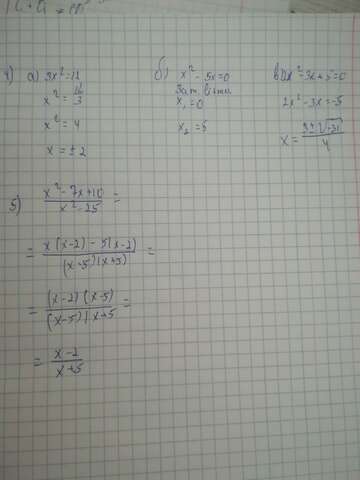 4) а) 3x²=12
x² = 12/3
x² = 4
x = ±2
б) x² - 5x=0
x₁ =0
x₂ =5
в) 2x²-3x+5=0
2x²-3x=-5
x = (3±√-31)/4
5) (x²-7x+10)/(x²-25) =
= (x(x-2)-5(x-2))/((x-5)(x+5)) =
= ((x-2)(x-5))/((x-5)(x+5 =
= (x-2)/(x+5)